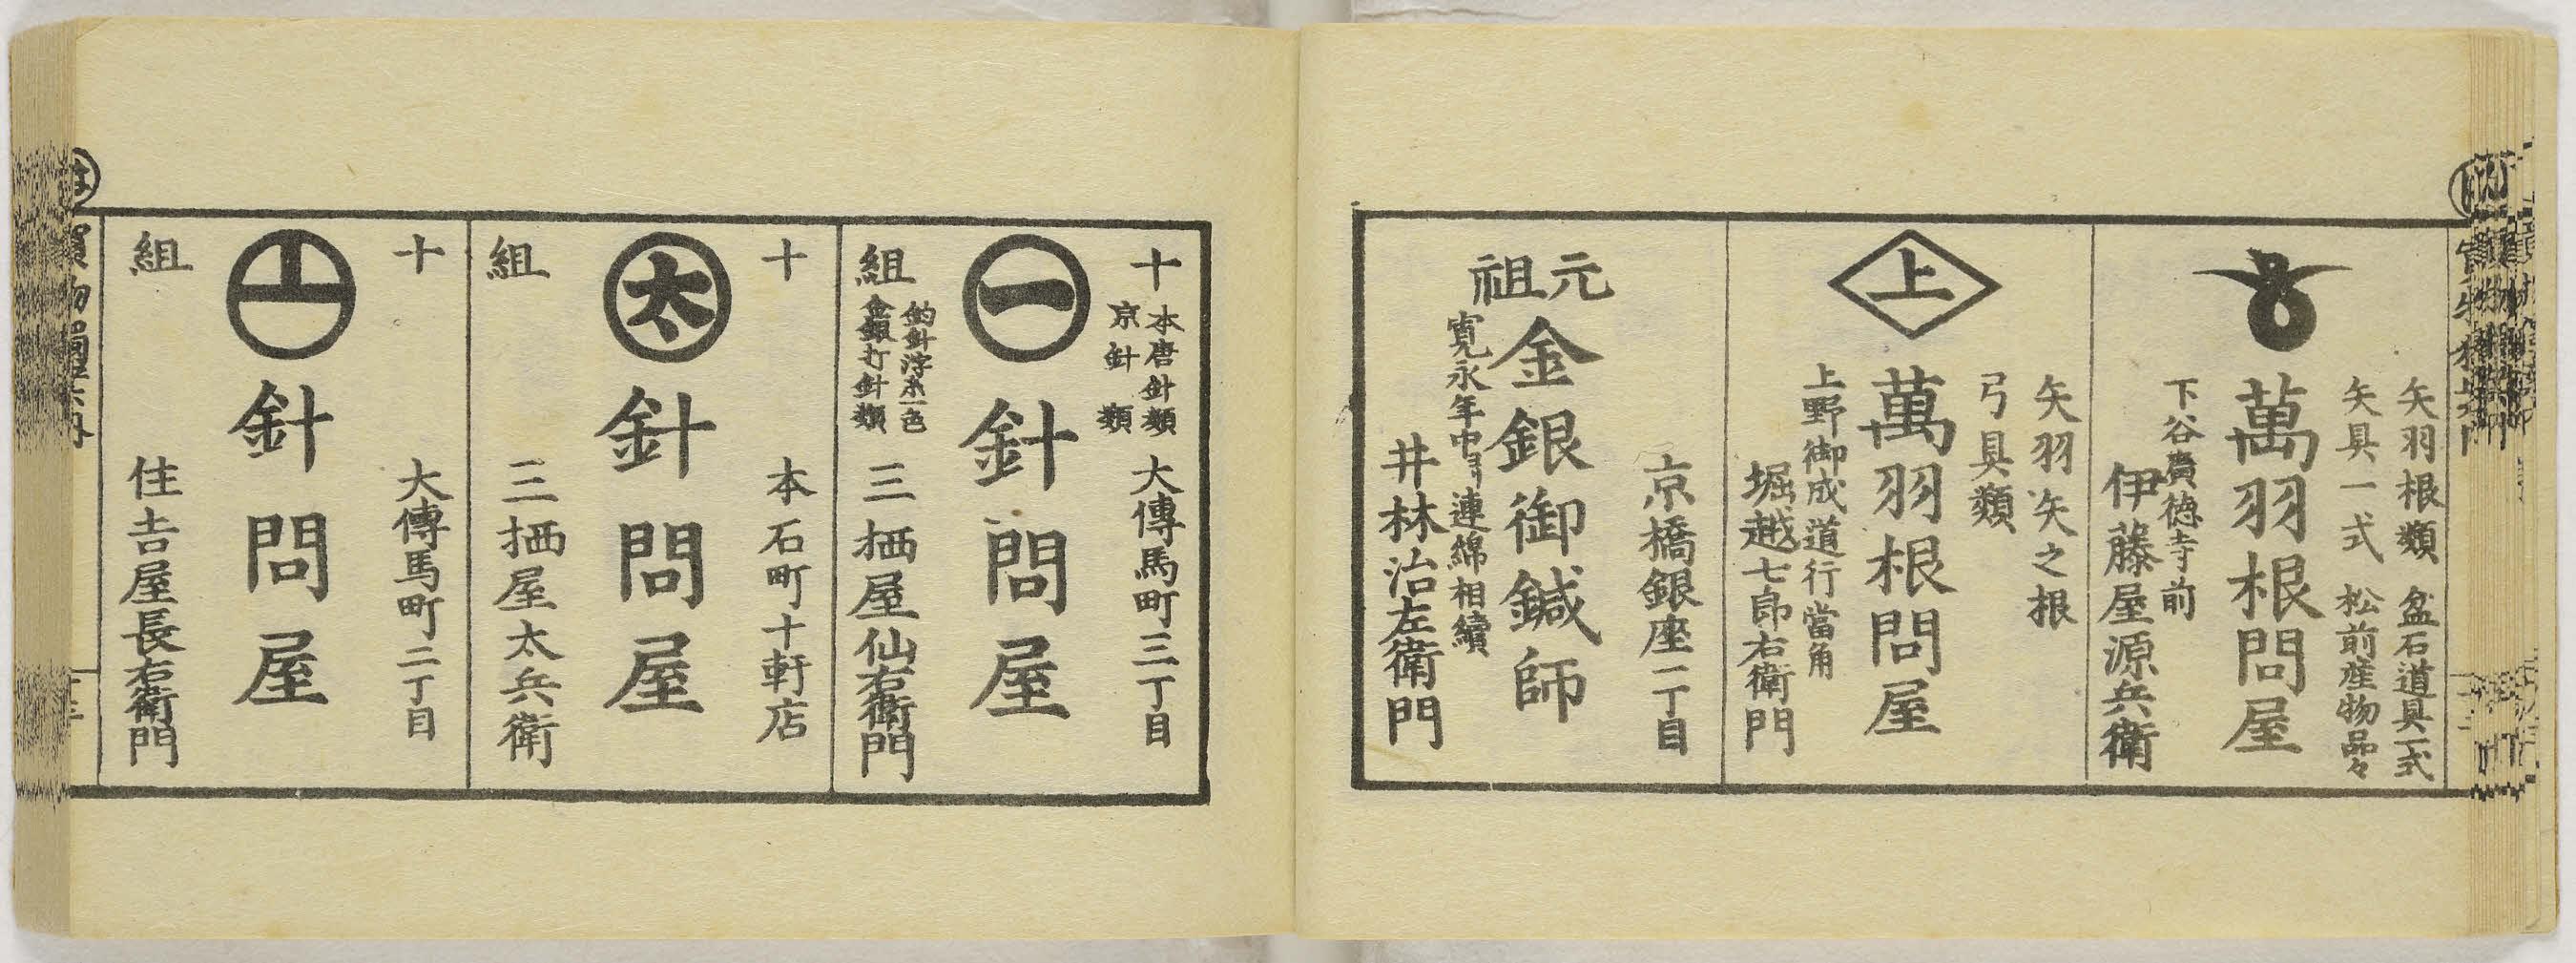 矢羽根類 盆石道具一式
矢具一式 松前産物品々
萬羽根問屋
下谷廣徳寺前
伊藤屋源兵衛
矢羽矢之根
弓具類
上
萬羽根問屋
上野御成道行當角
堀越七郎右衛門
京橋銀座二丁目
元祖
金銀御鍼師
寛永年中ヨリ連綿相續
井林治左衛門
十
本唐針類
京針類
大傳馬町三丁目
一
針問屋
組
釣針浮木一色
金銀打針類
三栖屋仙右衛門
十
本石町十軒店
太
針問屋
組
三栖屋太兵衛
十
大傳馬町二丁目
針問屋
組
住吉屋長右衛門